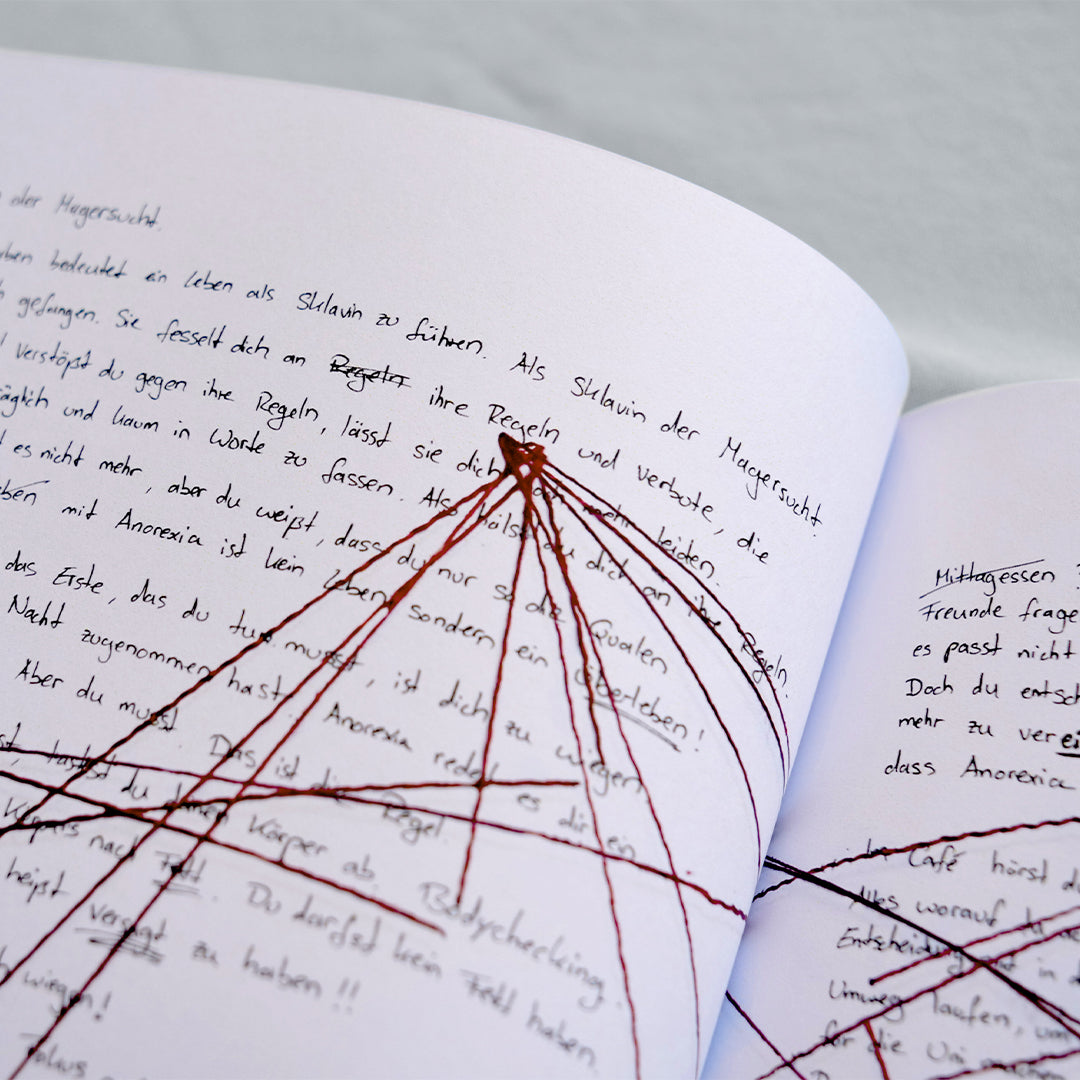 der Magersucht.
bedeutet ein Leben als Sklavin zu führen. Als Sklavin der Magersucht
gefangen. Sie fesselt dich an ~~Regeln~~ ihre Regeln und verbote, die
verstößt du gegen ihre Regeln, lässt sie dich noch mehr leiden.
und kaum in Worte zu fassen. Also hälst du dich an ihre Regeln.
es nicht mehr, aber du weißt, dass du nur so die Qualen
mit Anorexia ist kein Leben, sondern ein Überleben!
das Erste, das du tun musst, ist dich zu wiegen
Nacht zugenommen hast. Anorexia redet es dir ein
Aber du musst. Das ist die Regel.
tastest du deinen Körper ab. Bodychecking.
Körpers nach Fett. Du darfst kein Fett haben.
heißt versagt zu haben!!
wiegen!
Mittagessen
Freunde frage
es passt nicht
Doch du entsch
mehr zu verei
dass Anorexia
Im Café hörst
Alles worauf du
Entscheidung in
Umweg laufen, um
für die Uni